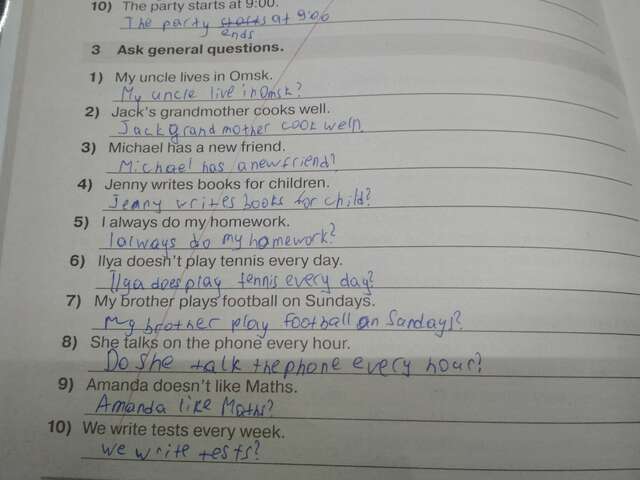 10) The party starts at 9:00.
The party starts at 9:00
ends
3 Ask general questions.
1) My uncle lives in Omsk.
My uncle live in Omsk?
2) Jack's grandmother cooks well.
Jack grand mother cook
3) Michael has a new friend.
Michael has a new friend?
4) Jenny writes books for children.
Jenny writes books for child?
5) I always do my homework.
I always do my homework?
6) Ilya doesn't play tennis every day.
Ilya does play tennis every day?
7) My brother plays football on Sundays.
My brother play football on Sandays?
8) She talks on the phone every hour.
Do she talk the phone every hour?
9) Amanda doesn't like Maths.
Amanda like Maths?
10) We write tests every week.
We write tests?